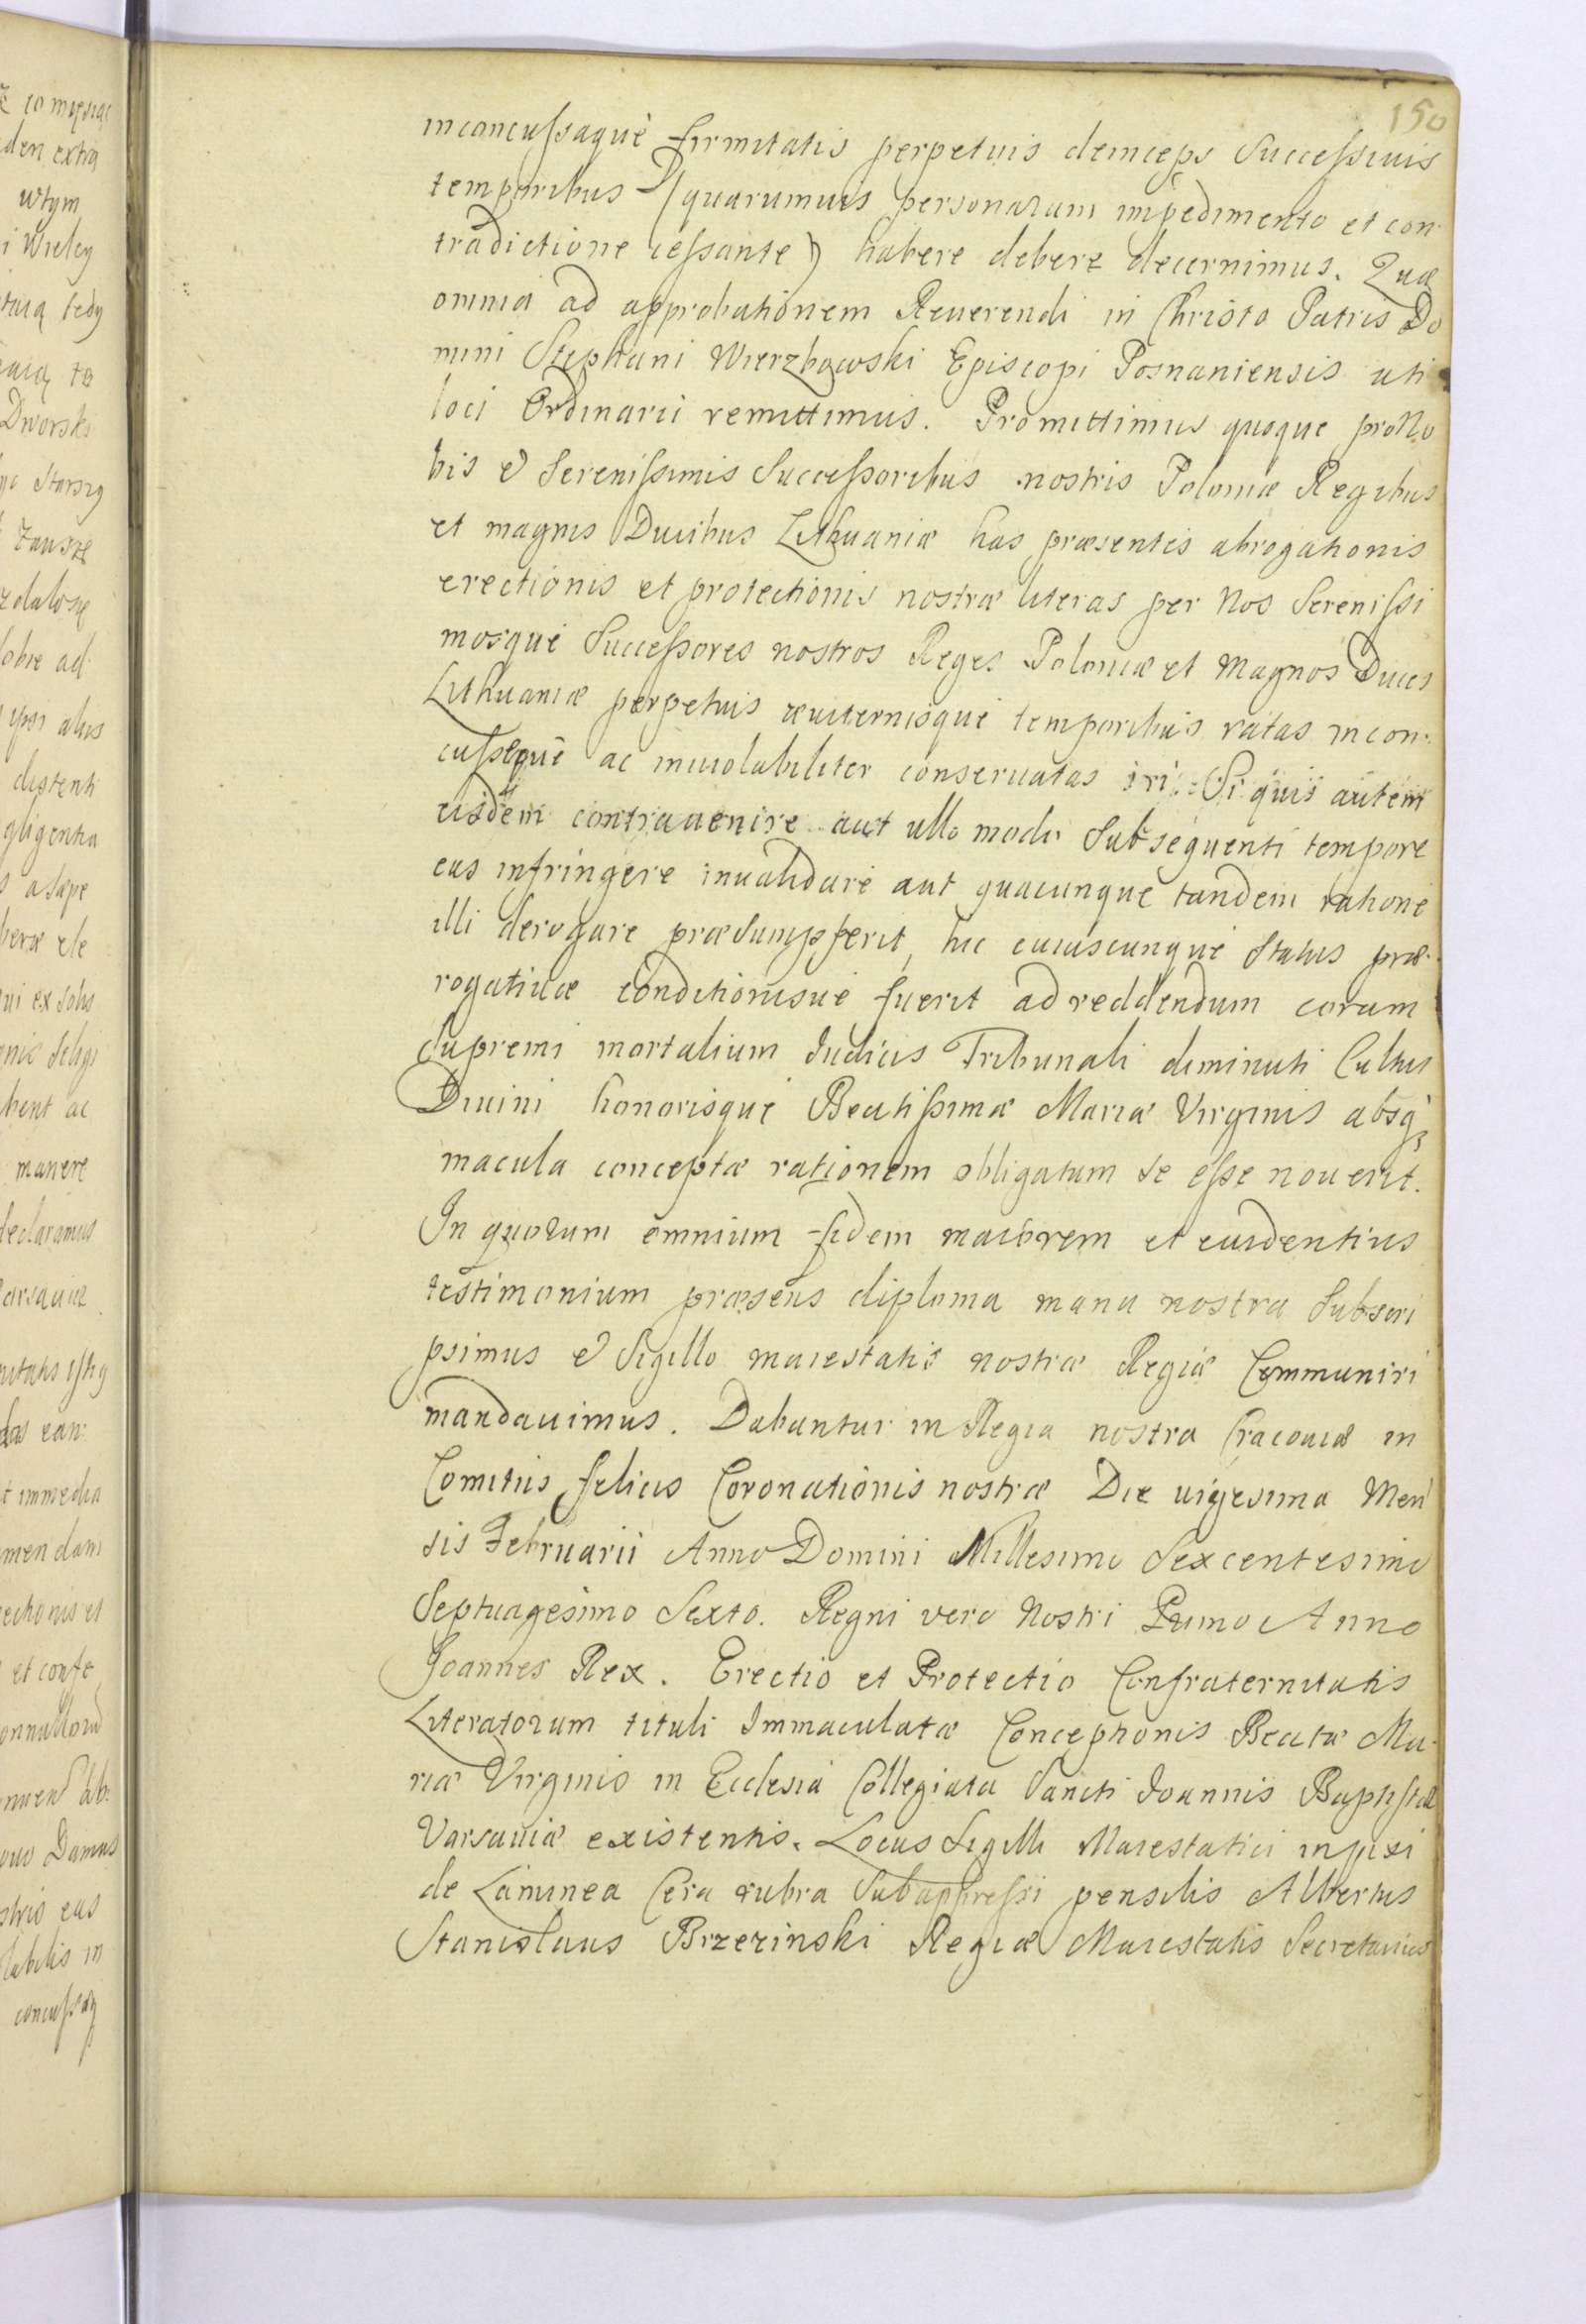 150
inconcussaquè firmitatis perpetuis deinceps Successiuis
temporibus (quarumuis personarum impedimento et con-
tradictione cessante) habere debere decernimus. Quæ
omnia ad approbationem Reuerendi in Christo Patris Do
mini Stephani Wierzbowski Episcopi Posnaniensis uti
loci Ordinarii remittimus. Promittimus quoque pro No
bis & Serenissimis Successoribus nostris Poloniæ Regibus
et magnis Ducibus Lithuaniæ has præsentis abrogationis
erectionis et protectionis nostræ literas per Nos Serenissi
mosque Successores nostros Reges Poloniæ et Magnos Duces
Lithuaniæ perpetuis æuiternisque temporibus ratas incon-
cusseque ac inuiolabiliter conseruatas iri. Si quis autem
eisdem contrauenire aut ullo modo Subsequenti tempore
eas infringere inualidare aut quacunque tandem ratione
illi derogare præsumpserit, hic cuiuscunque Status præ-
rogatiuæ conditionisue fuerit ad reddendum coram
Supremi mortalium Judicis Tribunali diminuti Cultus
Diuini honorisque Beatissimæ Mariæ Virginis absq;
macula conceptæ rationem obligatum se esse nouerit.
In quorum omnium fidem maiorem et euidentius
testimonium præsens diploma manu nostra Subscri
psimus & Sigillo maiestatis nostræ Regiæ Communiri
mandauimus. Dabantur in Regia nostra Cracouiæ in
Comitiis felicis Coronationis nostræ Die uigesima Men
sis Februarii Anno Domini Millesimo Sexcentesimo
Septuagesimo Sexto. Regni vero Nostri Primo Anno
Joannes Rex. Erectio et Protectio Confraternitatis
Literatorum tituli Immaculatæ Conceptionis Beatæ Ma-
riæ Virginis in Ecclesia Collegiata Sancti Joannis Baptistæ
Varsauiæ existentis. Locus Sigilli Maiestatici infixi
de Laminea Cera rubra Subappressi pensilis Albertus
Stanislaus Brzezinski Regiæ Maiestatis Secretarius